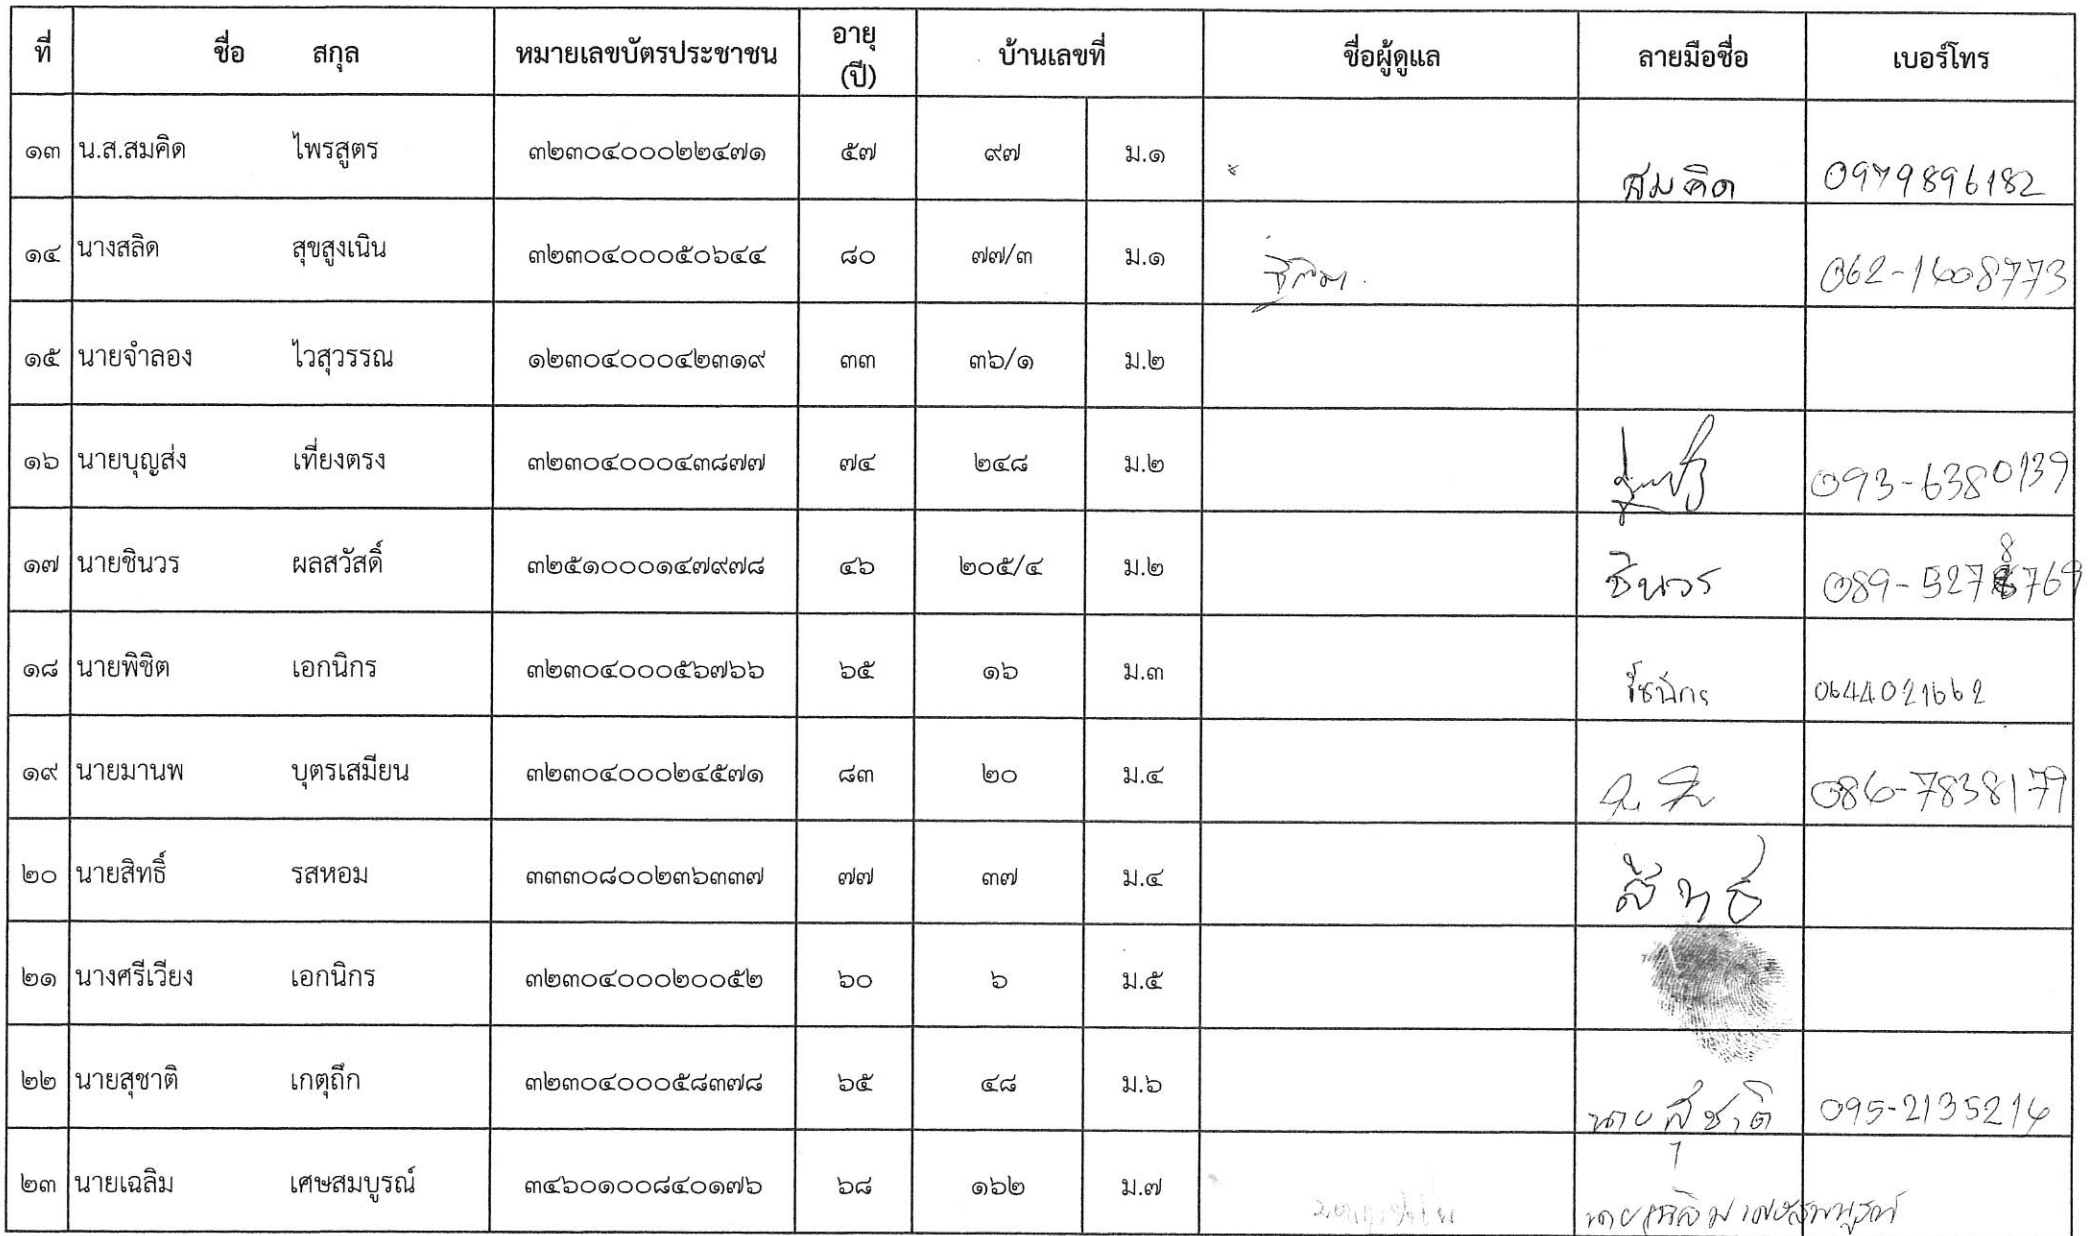 ที่ ชื่อ สกุล หมายเลขบัตรประชาชน อายุ (ปี) บ้านเลขที่ ชื่อผู้ดูแล ลายมือชื่อ เบอร์โทร
๑๓ น.ส.สมคิด ไพรสูตร ๓๒๓๐๔๐๐๐๒๒๔๗๑ ๕๗ ๙๗ ม.๑ สมคิด 0979896182
๑๔ นางสลิด สุขสูงเนิน ๓๒๓๐๔๐๐๐๕๐๖๔๔ ๘๐ ๗๗/๓ ม.๑ 062-1608773
๑๕ นายจำลอง ไวสุวรรณ ๑๒๓๐๔๐๐๐๔๒๓๑๙ ๓๓ ๓๖/๑ ม.๒
๑๖ นายบุญส่ง เที่ยงตรง ๓๒๓๐๔๐๐๐๔๓๘๗๗ ๗๔ ๒๔๘ ม.๒ 093-6380139
๑๗ นายชินวร ผลสวัสดิ์ ๓๒๕๑๐๐๐๑๔๗๙๗๘ ๔๖ ๒๐๕/๔ ม.๒ ชินวร 089-5278769
๑๘ นายพิชิต เอกนิกร ๓๒๓๐๔๐๐๐๕๖๗๖๖ ๖๕ ๑๖ ม.๓ 0644021662
๑๙ นายมานพ บุตรเสมียน ๓๒๓๐๔๐๐๐๒๔๕๗๑ ๘๓ ๒๐ ม.๔ 086-7838179
๒๐ นายสิทธิ์ รสหอม ๓๓๓๐๘๐๐๒๓๖๓๓๗ ๗๗ ๓๗ ม.๔ สิทธิ์
๒๑ นางศรีเวียง เอกนิกร ๓๒๓๐๔๐๐๐๒๐๐๕๒ ๖๐ ๖ ม.๕
๒๒ นายสุชาติ เกตุถึก ๓๒๓๐๔๐๐๐๕๘๓๗๘ ๖๕ ๔๘ ม.๖ นายสุชาติ 095-2135214
๒๓ นายเฉลิม เศษสมบูรณ์ ๓๔๖๐๑๐๐๘๔๐๑๗๖ ๖๘ ๑๖๒ ม.๗ นายเฉลิม เศษสมบูรณ์